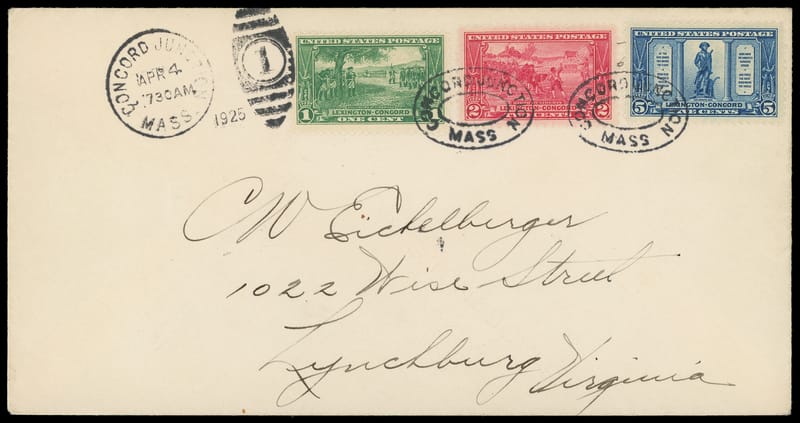 CONCORD JUNCTION
APR 4
730AM
MASS.
1925
1
UNITED STATES POSTAGE
LEXINGTON-CONCORD
1 ONE CENT 1
UNITED STATES POSTAGE
LEXINGTON-CONCORD
2 CENTS 2
UNITED STATES POSTAGE
LEXINGTON-CONCORD
5 CENTS 5
CONCORD JUNCTION
MASS
CONCORD JUNCTION
MASS
CW Eichelberger
1022 Wise Street
Lynchburg Virginia